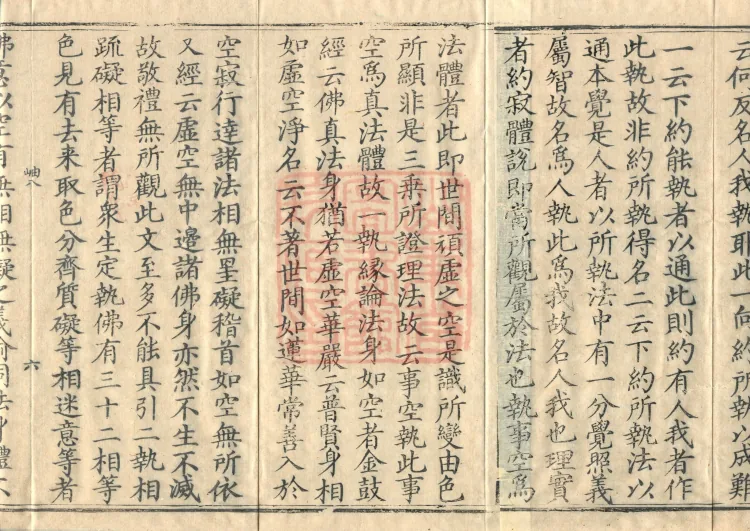 云何及名人我執耶此一向約所執以成難
一云下約能執者以通此則約有人我者作
此執故非約所執得名二云下約所執法以
通本覺是人者以所執法中有一分覺照義
屬智故名爲人執此爲我故名人我也理實
者約寂體說即當所觀屬於法也執事空爲
法體者此即世間頑虛之空是識所變由色
所顯非是三乘所證理法故云事空執此事
空爲真法體故一執緣論法身如空者金鼓
經云佛真法身猶若虛空華嚴云普賢身相
如虛空淨名云不著世間如蓮華常善入於
空寂行達諸法相無罣礙稽首如空無所依
又經云虛空無中邊諸佛身亦然不生不滅
故敬禮無所觀此文至多不能具引二執相
疏礙相等者謂衆生定執佛有三十二相等
色見有去来取色分齊質礙等相迷意等者
岫八 六
佛意以空有無相無礙之義喻同法身體不